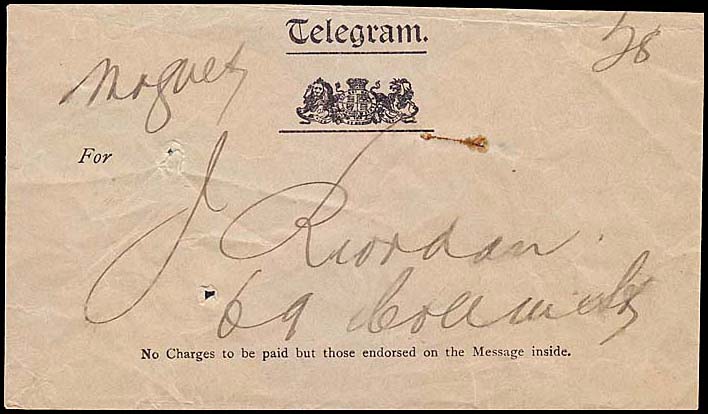 Telegram.
For
J Riordan
69
No Charges to be paid but those endorsed on the Message inside.